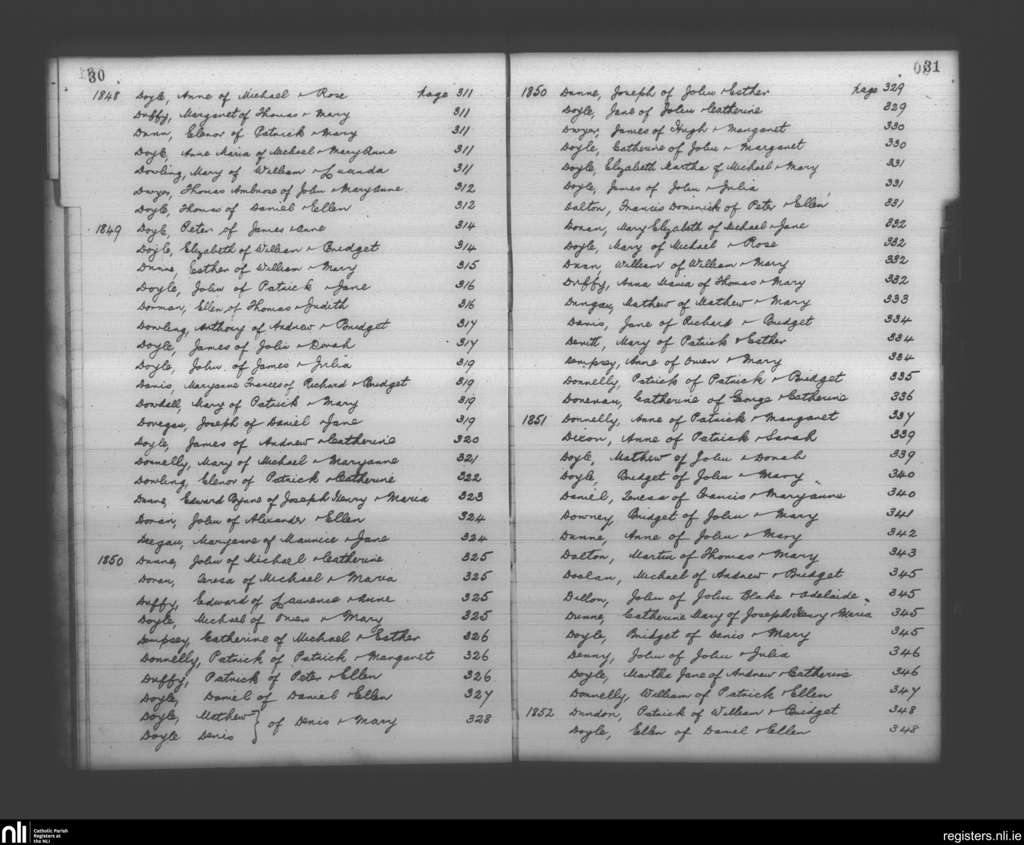 30
1848 Doyle, Anne of Michael & Rose page 311
Duffy, Margaret of Thomas & Mary 311
Dunn, Elenor of Patrick & Mary 311
Doyle, Anne Maria of Michael & Mary Anne 311
Dowling, Mary of William & Lucinda 311
Dwyer, Thomas Ambrose of John & Maryanne 312
Doyle, Thomas of Daniel & Ellen 312
1849 Doyle, Peter of James & Jane 314
Doyle, Elizabeth of William & Bridget 314
Dunne, Esther of William & Mary 315
Doyle, John of Patrick & Jane 316
Dorman, Ellen of Thomas & Judith 316
Dowling, Anthony of Andrew & Bridget 317
Doyle, James of John & Dorah 317
Doyle, John of James & Julia 319
Davis, Maryanne Frances of Richard & Bridget 319
Dowdall, Mary of Patrick & Mary 319
Donegan, Joseph of Daniel & Jane 319
Doyle, James of Andrew & Catherine 320
Donnelly, Mary of Michael & Maryanne 321
Dowling, Elenor of Patrick & Catherine 322
Dunne, Edward Byrne of Joseph Henry & Maria 323
Doran, John of Alexander & Ellen 324
Deegan, Maryanne of Maurice & Jane 324
1850 Dunne, John of Michael & Catherine 325
Doran, Teresa of Michael & Maria 325
Duffy, Edward of Laurence & Anne 325
Doyle, Michael of Owen & Mary 325
Dempsey, Catherine of Michael & Esther 326
Donnelly, Patrick of Patrick & Margaret 326
Duffy, Patrick of Peter & Ellen 326
Doyle, Daniel of Daniel & Ellen 327
Doyle, Mathew } of Denis & Mary 328
Doyle Denis
31
1850 Dunne, Joseph of John & Esther page 329
Doyle, Jane of John & Catherine 329
Dwyer, James of Hugh & Margaret 330
Doyle, Catherine of John & Margaret 330
Doyle, Elizabeth Martha of Michael & Mary 331
Doyle, James of John & Julia 331
Dalton, Francis Dominick of Peter & Ellen 331
Doran, Mary Elizabeth of Michael & Jane 332
Doyle, Mary of Michael & Rose 332
Dunn, William of William & Mary 332
Duffy, Anna Maria of Thomas & Mary 332
Dungan, Mathew of Mathew & Mary 333
Davis, Jane of Richard & Bridget 334
Devitt, Mary of Patrick & Esther 334
Dempsey, Anne of Owen & Mary 334
Donnelly, Patrick of Patrick & Bridget 335
Donevan, Catherine of George & Catherine 336
1851 Donnelly, Anne of Patrick & Margaret 337
Dixon, Anne of Patrick & Sarah 339
Doyle, Mathew of John & Dorah 339
Doyle, Bridget of John & Mary 340
Daniel, Teresa of Francis & Maryanne 340
Downey, Bridget of John & Mary 341
Dunne, Anne of John & Mary 342
Dalton, Martin of Thomas & Mary 343
Doolan, Michael of Andrew & Bridget 345
Dillon, John of John Blake & Adelaide 345
Dunne, Catherine Mary of Joseph Henry & Maria 345
Doyle, Bridget of Denis & Mary 345
Denny, John of John & Julia 346
Doyle, Martha Jane of Andrew & Catherine 346
Donnelly, William of Patrick & Ellen 347
1852 Dundon, Patrick of William & Bridget 348
Doyle, Ellen of Daniel & Ellen 348
nli Catholic Parish Registers at the NLI
registers.nli.ie